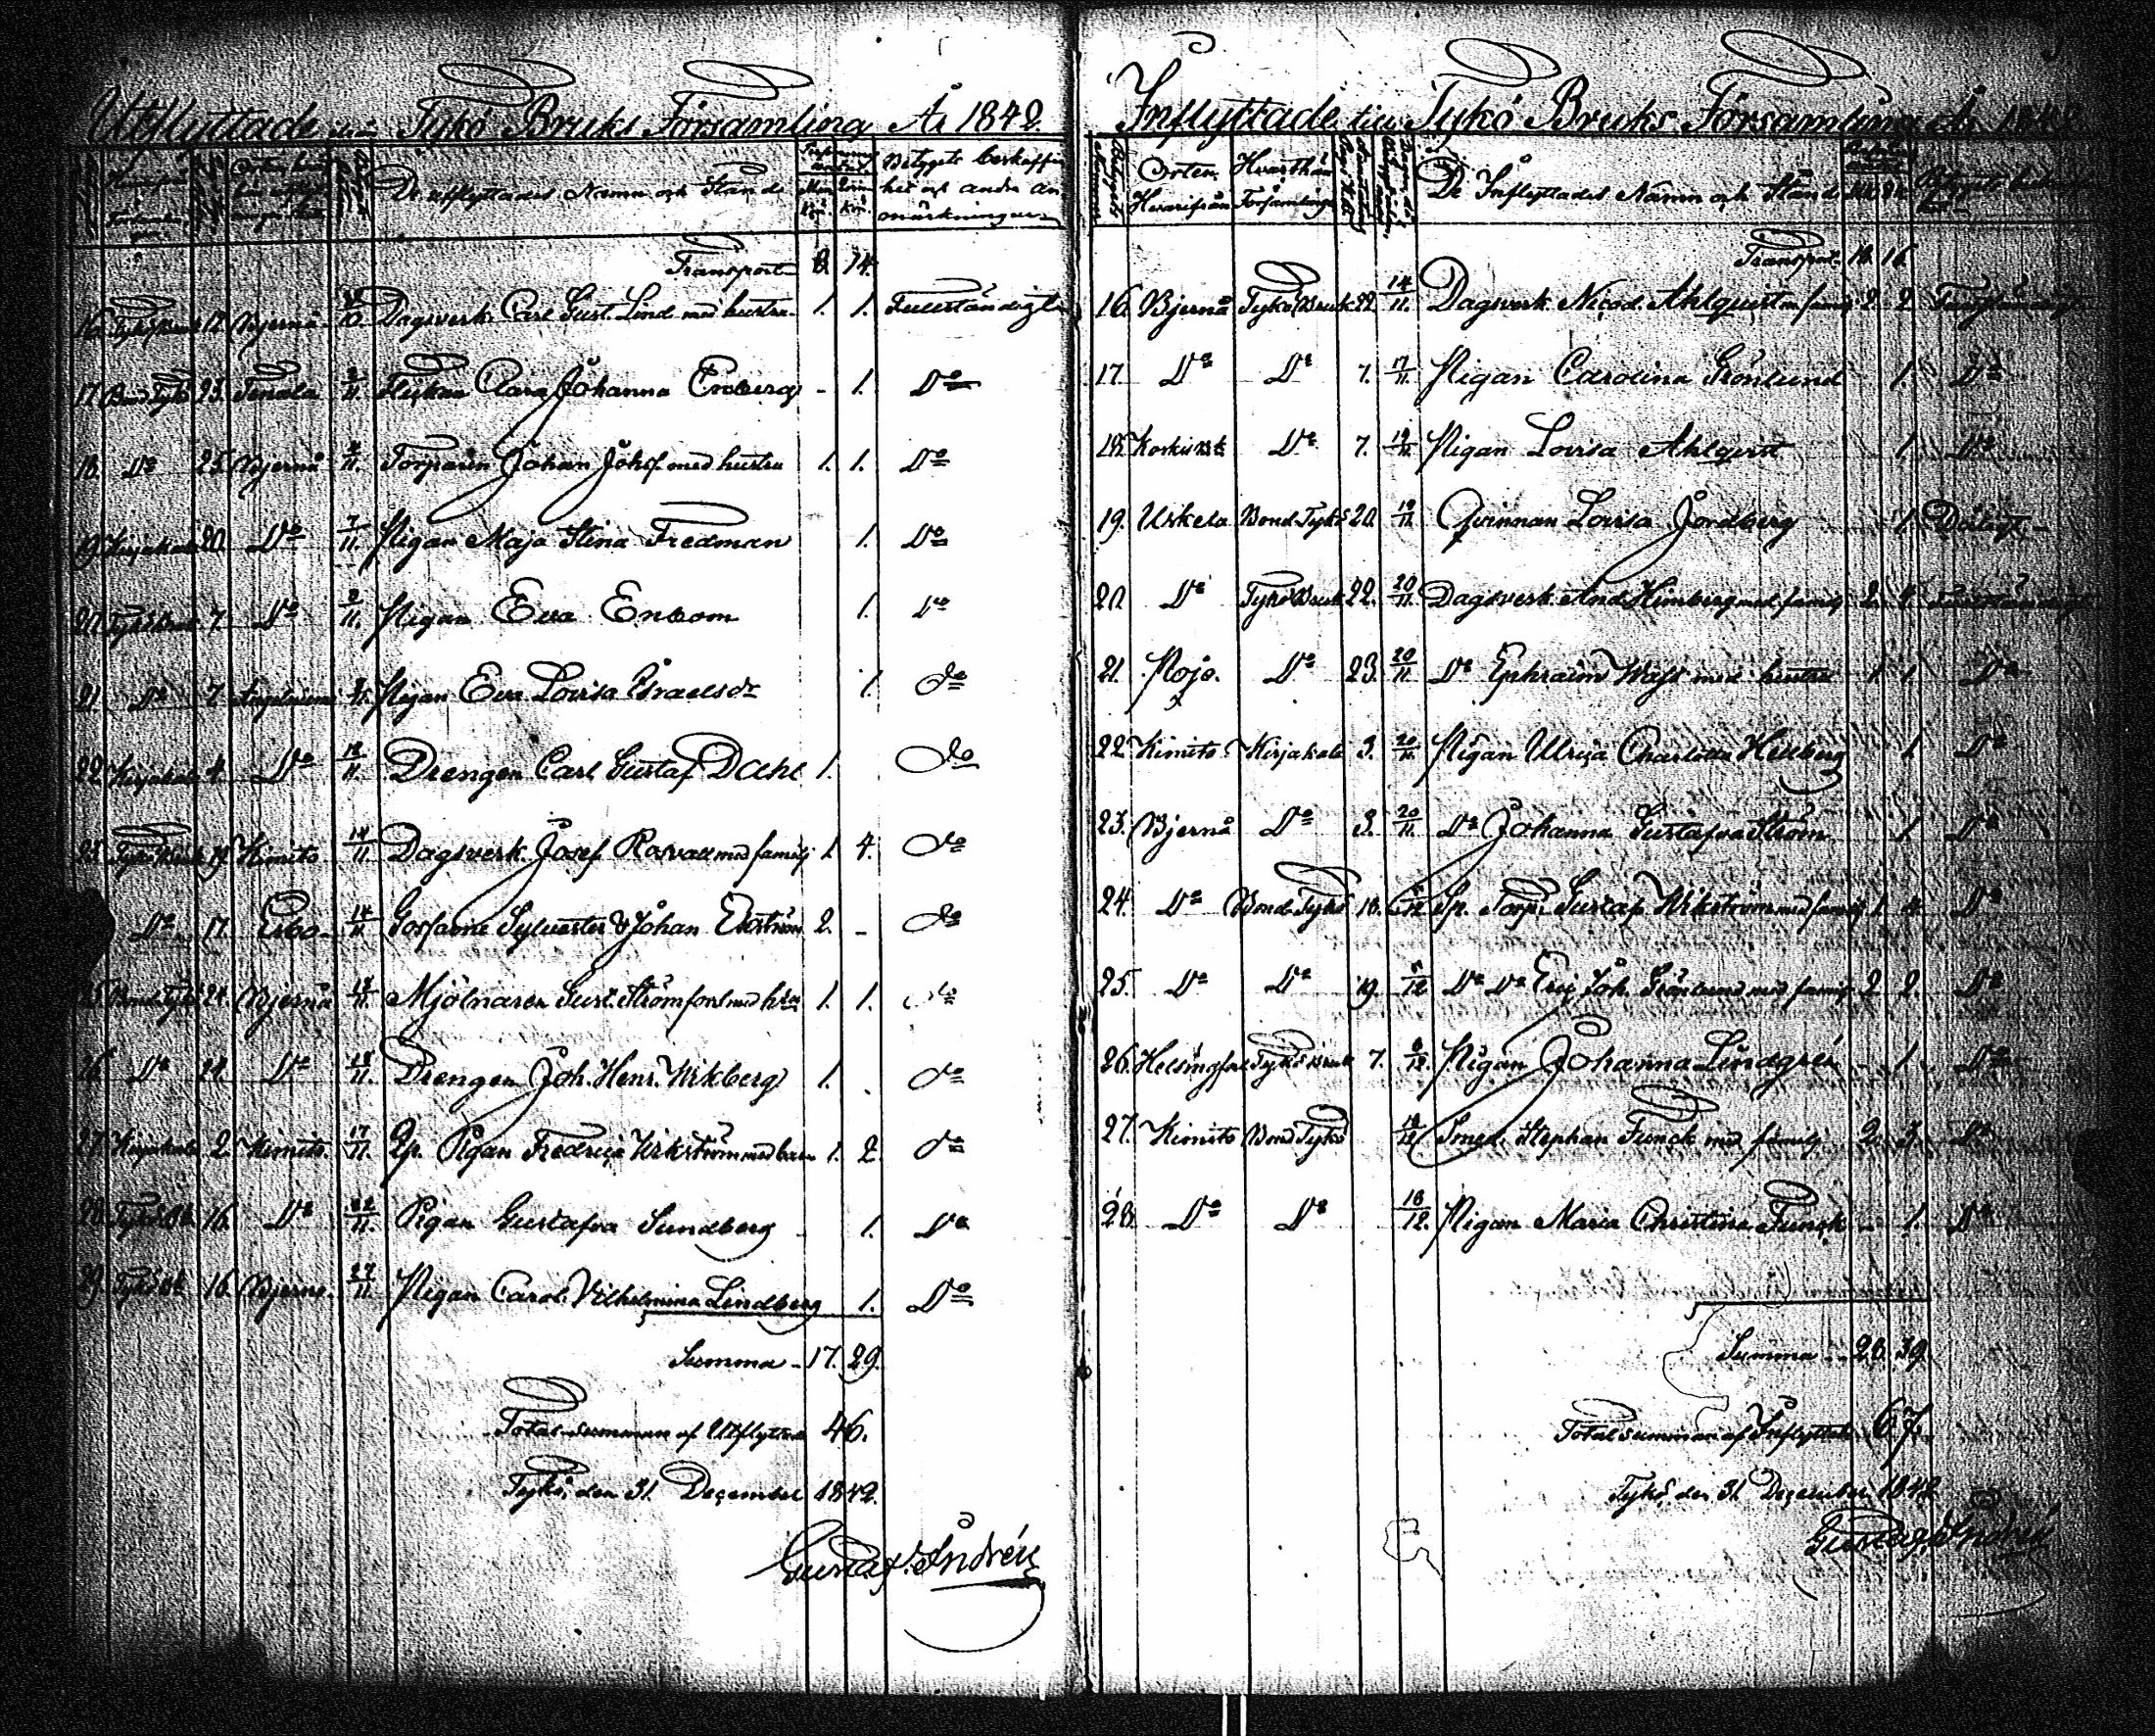 Utflyttade från Tykö Bruks Församling År 1842.
De utflyttades Namn och Stånd
Betygets beskaffen
het och andra an
märkningar
Transport 8. 14.
16. Tykö Bruk 17. Bjernå Dagsverk. Carl Gust. Lind med hustru 1. 1. Fullständigt
17. Bond Tykö 23. Tenala 2/11. Flickan Clara Johanna Enberg - 1. Do
18. Do 25. Bjernå 2/11. Torparen Johan Johsf. med hustru 1. 1. Do
19. Kirjakala 20. Do 7/11. Pigan Maja Stina Fredman 1. Do
20. Tykö Bruk 7. Do 2/11. Pigan Eva Enbom 1. Do
21. Do 7. Pigan Eva Lovisa Israelsdr 1. Do
22. Kirjakala 4. Do 12/11. Drengen Carl Gustaf Dahl 1. Do
23. Tykö Bruk 19. Kimito 14/11 Dagsverk. Josef Rosvall med familj 1. 4. Do
Do 17. Esbo 14/11 Gossarne Sylvester & Johan Ekström 2. - Do
25. Bond Tykö 24. Bjernå 18/11. Mjölnaren Gust. Strömfors med hstr 1. 1. Do
26. Do 24. Do 18/11. Drengen Joh. Henr. Wikberg 1. Do
27. Kirjakala 2. Kimito. 17/11. Qp. Pigan Fredrica Wikström med barn 1. 2. Do
28. Tykö Bk 16. Do 22/11. Pigan Gustafva Sundberg 1. Do
29. Tykö Bk 16. Bjerno. 27/11 Pigan Carol. Vilhelmina Lindberg 1. Do
Summa - 17. 29.
Total-summan af Utflyttade 46.
Tykö, den 31. December 1842.
Gustaf Andrén
Inflyttade till Tykö Bruks Församling År 1842
Orten Hvarthän
Hvarifrån Församlinge
De Inflyttades Namn och Stånd
Transport 16.
16. Bjernå Tykö Bruk 22. 14/11. Dagsverk. Nicod. Ahlquist m familj 2. 2. Fullständigt
17. Do Do 7. 17/11. Pigan Carolina Grönlund 1. Do
18. Koskis Bk Do 7. 19/11. Pigan Lovisa Ahlqvist 1. Do
19. Uskela Bond Tykö 20. 19/11. Qvinnan Lovisa Jordberg 1. Dåligt
20. Do Tykö Bruk 22. 20/11. Dagsverk. And. Himberg med familj 2. 4. Fullständigt
21. Pojo. Do 23. 20/11 Do Ephraim Wass med hustru 1. 1. Do
22. Kimito Kirjakala 3. 20/11. Pigan Ulrica Charlotta Hellberg 1. Do
23. Bjernå Do 3. 20/11. Do Johanna Gustafva Ström 1. Do
24. Do Bond Tykö 18. Sp. Torp. Gustaf Wikström med familj 1. 4. Do
25. Do Do 19. 5/12 Do Do Eric Joh. Grönlund med familj 2 2. Do
26. Helsingfors Tykö Bruk 7. 8/12. Pigan Johanna Lindgrén - 1. Do
27. Kimito Bond Tykö Smed. Stephan Funck med familj 2. 3. Do
28. Do Do 18/12. Pigan Maria Christina Funck - 1. Do
Summa .. 28. 39.
Total summan af Inflyttade 67.
Tykö, den 31. December 1842
Gustaf Andrén